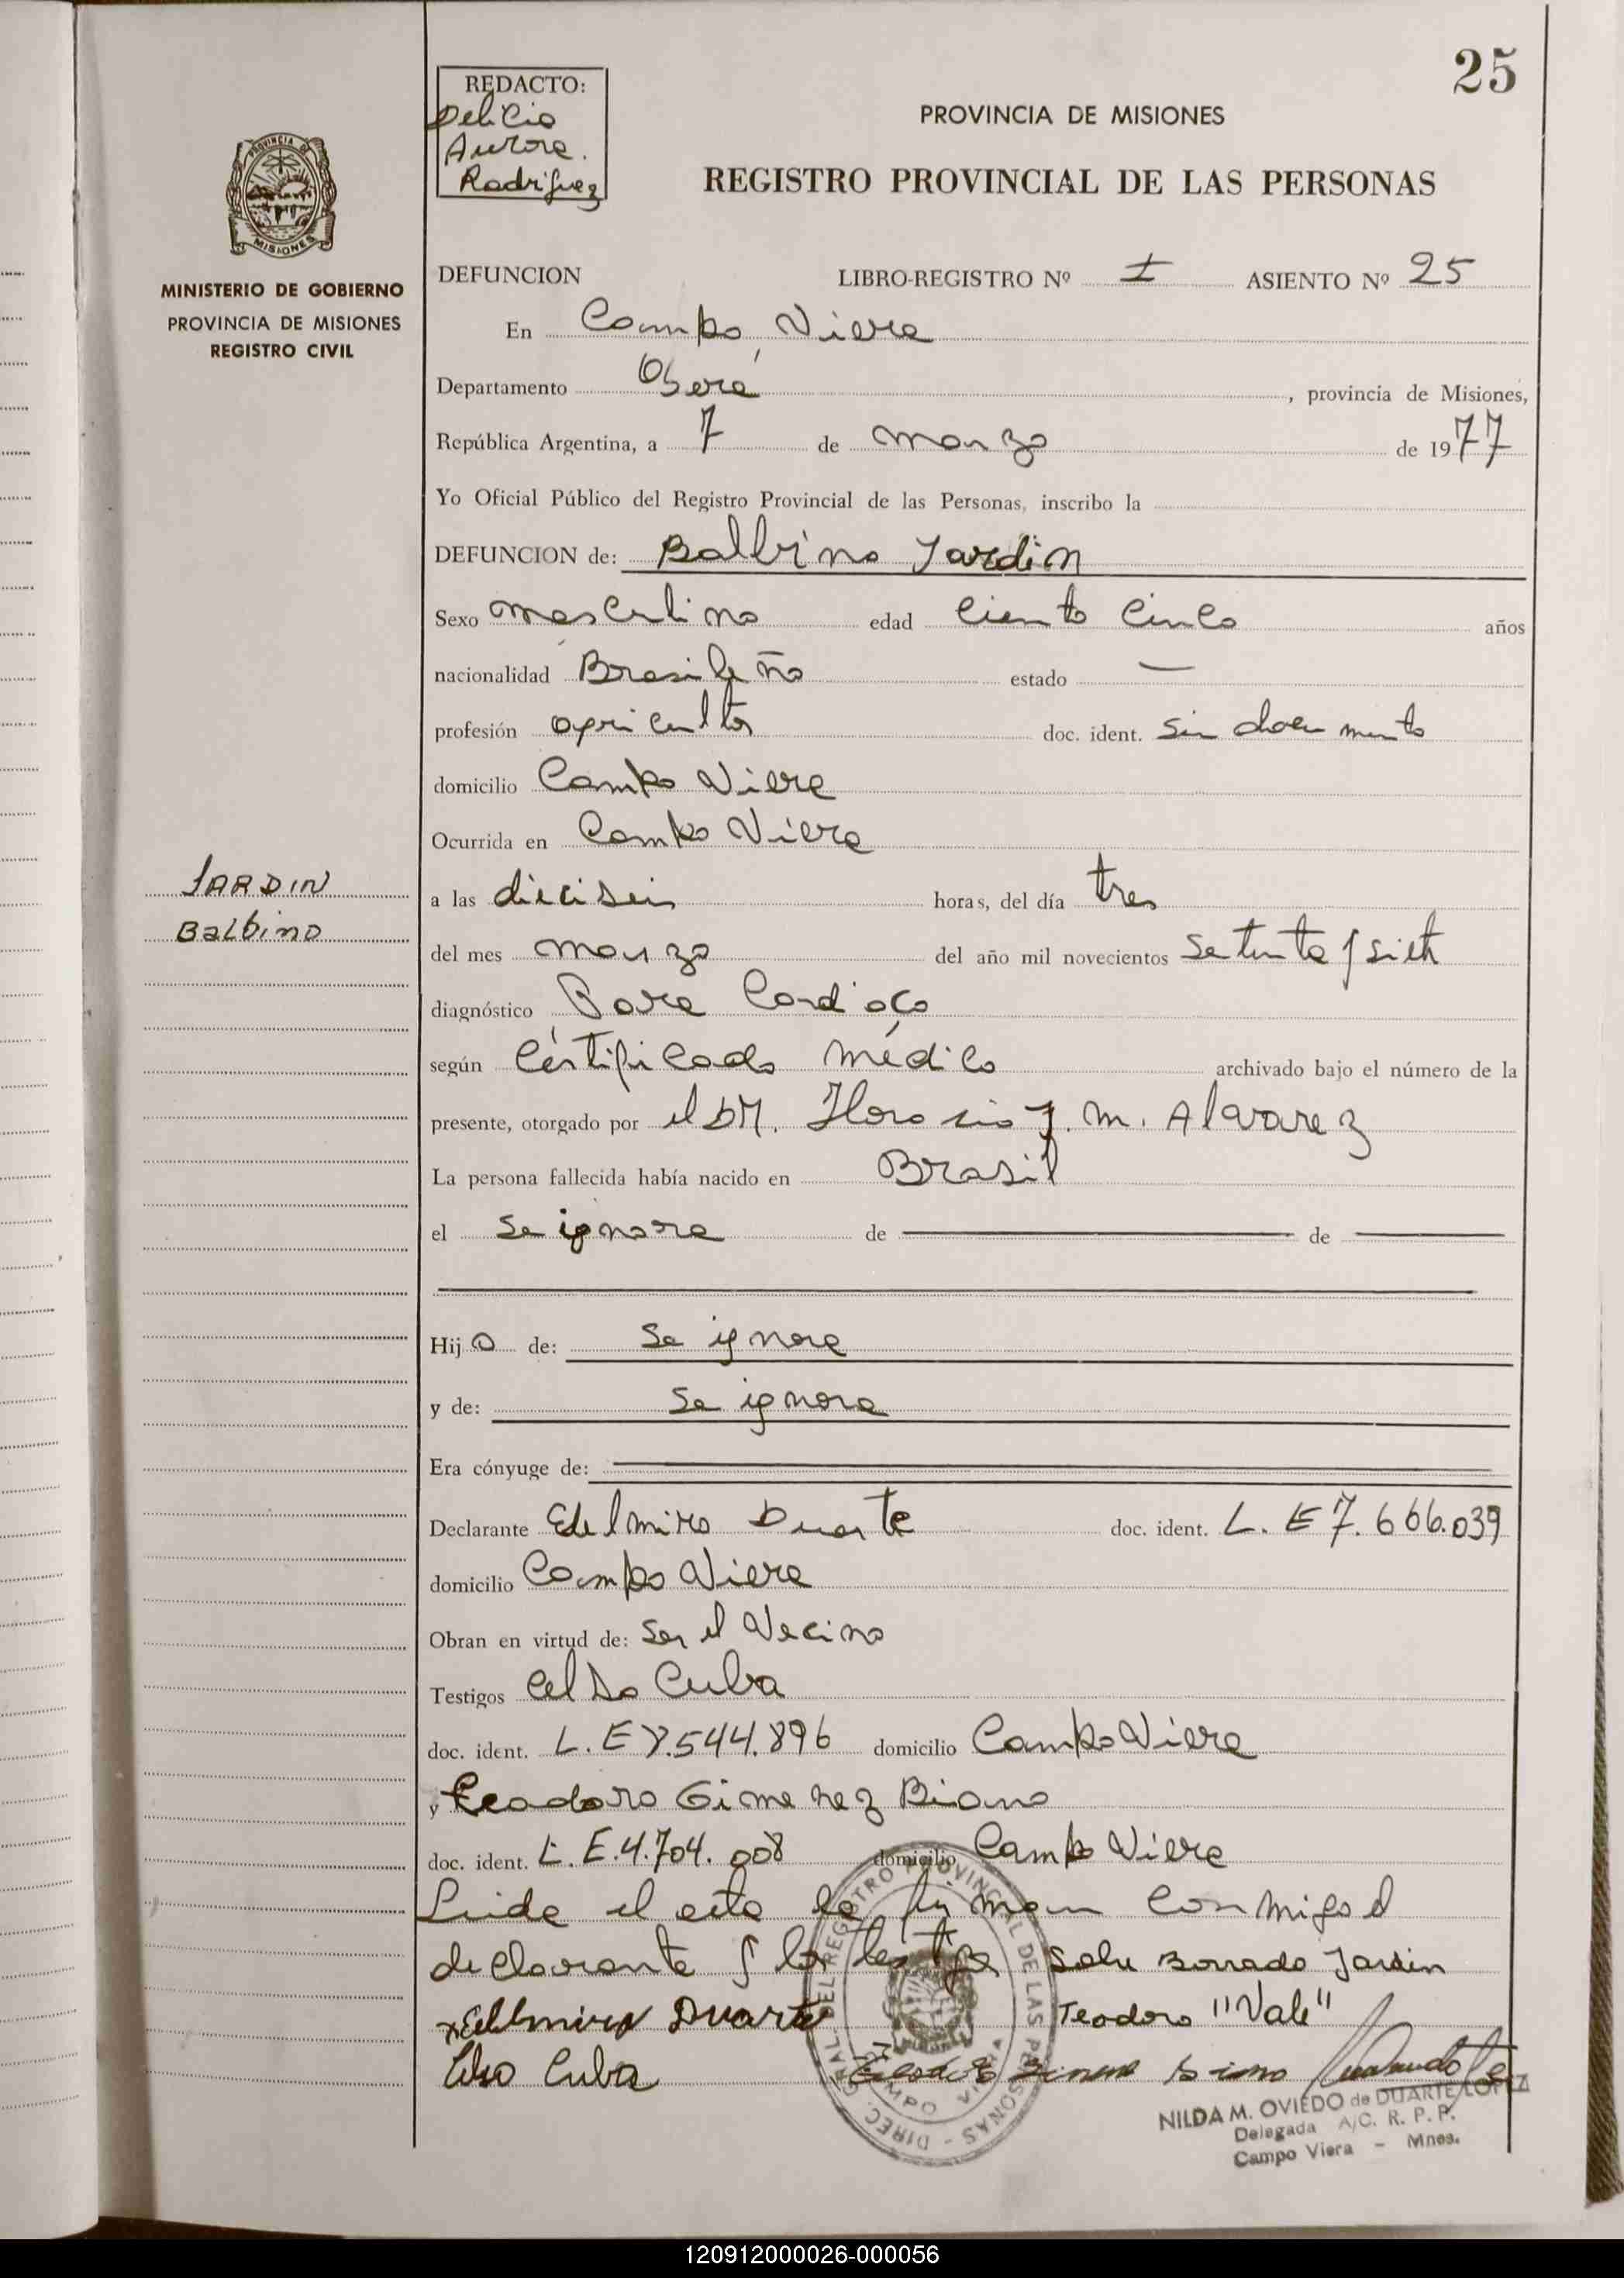 25
REDACTO:
Delicia
Aurora.
Rodriguez
PROVINCIA DE MISIONES
REGISTRO PROVINCIAL DE LAS PERSONAS
PROVINCIA DE
MISIONES
MINISTERIO DE GOBIERNO
PROVINCIA DE MISIONES
REGISTRO CIVIL
DEFUNCION LIBRO-REGISTRO Nº I ASIENTO Nº 25
En Campo Viera
Departamento Oberá, provincia de Misiones,
República Argentina, a 7 de marzo de 1977
Yo Oficial Público del Registro Provincial de las Personas, inscribo la
DEFUNCION de: Balbino Jardin
Sexo masculino edad ciento cinco años
nacionalidad Brasileño estado —
profesión agricultor doc. ident. sin documento
domicilio Campo Viera
Ocurrida en Campo Viera
JARDIN
Balbino
a las dieciseis horas, del día tres
del mes marzo del año mil novecientos setenta y siete
diagnóstico Paro Cardiaco
según Certificado médico archivado bajo el número de la
presente, otorgado por el DR. Horacio J. M. Alvarez
La persona fallecida había nacido en Brasil
el se ignora de de
Hijo de: se ignora
y de: se ignora
Era cónyuge de:
Declarante Edelmiro Duarte doc. ident. L. E 7.666.039
domicilio Campo Viera
Obran en virtud de: ser el Vecino
Testigos Celso Cuba
doc. ident. L. E 8.544.896 domicilio Campo Viera
y Teodoro Gimenez Biano
doc. ident. L. E. 4.704.008 domicilio Campo Viera
Leida el acta la firman conmigo el
declarante y los testigos Sobre Borrado Jardin
Edelmiro Duarte Teodoro "Vale"
Celso Cuba
NILDA M. OVIEDO de DUARTE LOPEZ
Delegada A/C. R. P. P.
Campo Viera - Mnes.
DIREC. GRAL. DEL REGISTRO PROVINCIAL DE LAS PERSONAS
CAMPO VIERA
120912000026-000056